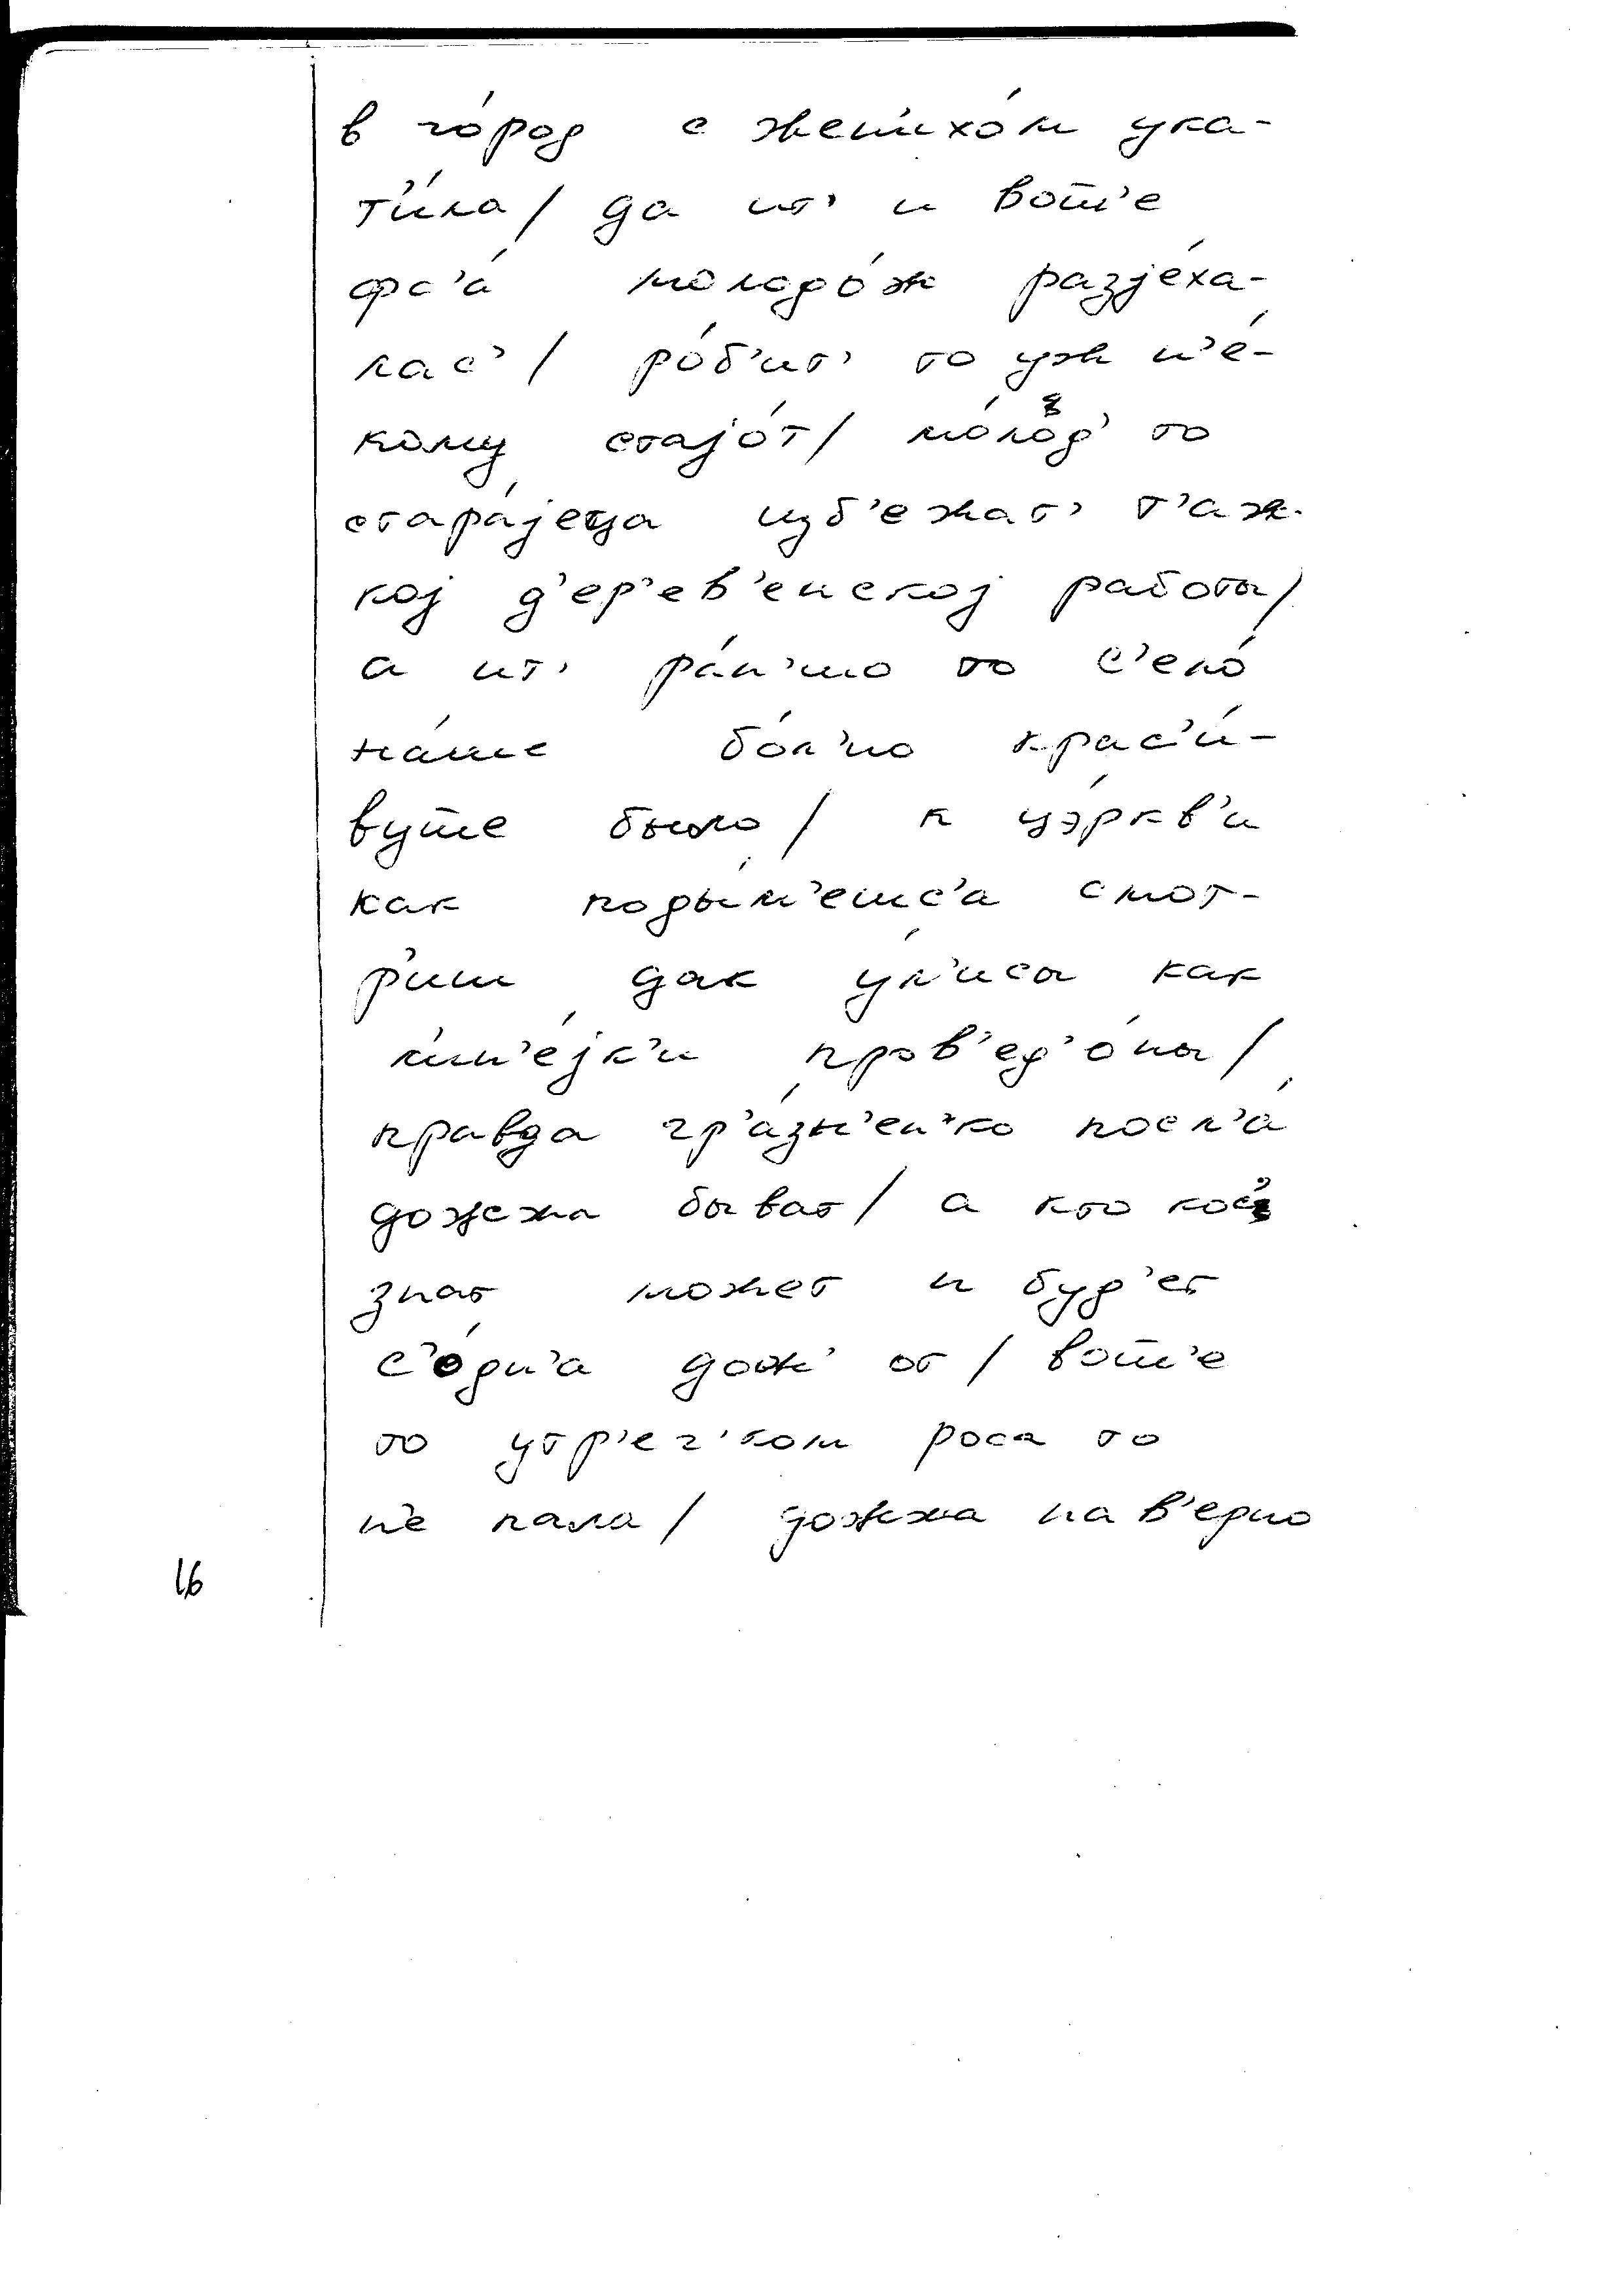 в го́род с жен'ихо́м ука-
т'и́ла / да ит' и вот'е
фс'а́ молодо́ж разје́ха-
лас' / ро́б'ит' то уж н'е́-
кому стајо́т / мо́лод' то
стара́јеца изб'ежат' т'аж-
кој д'ер'ев'енској работы /
а ит' ра́н'шо то с'ело́
на́ше бо́л'но крас'и́-
вуте было / к цэ́ркв'и
как поды́м'ешс'а смот-
р'иш дак у́л'исы как
л'ин'е́јк'и пров'ед'о́ны /
правда гр'а́зн'ен'ко посл'а́
дожжа быват / а кто кос'
знат может и буд'ет
с'о́дн'а дож' от / вот'е
то утр'еч'ком роса то
н'е пала / дожжа нав'ерно
16